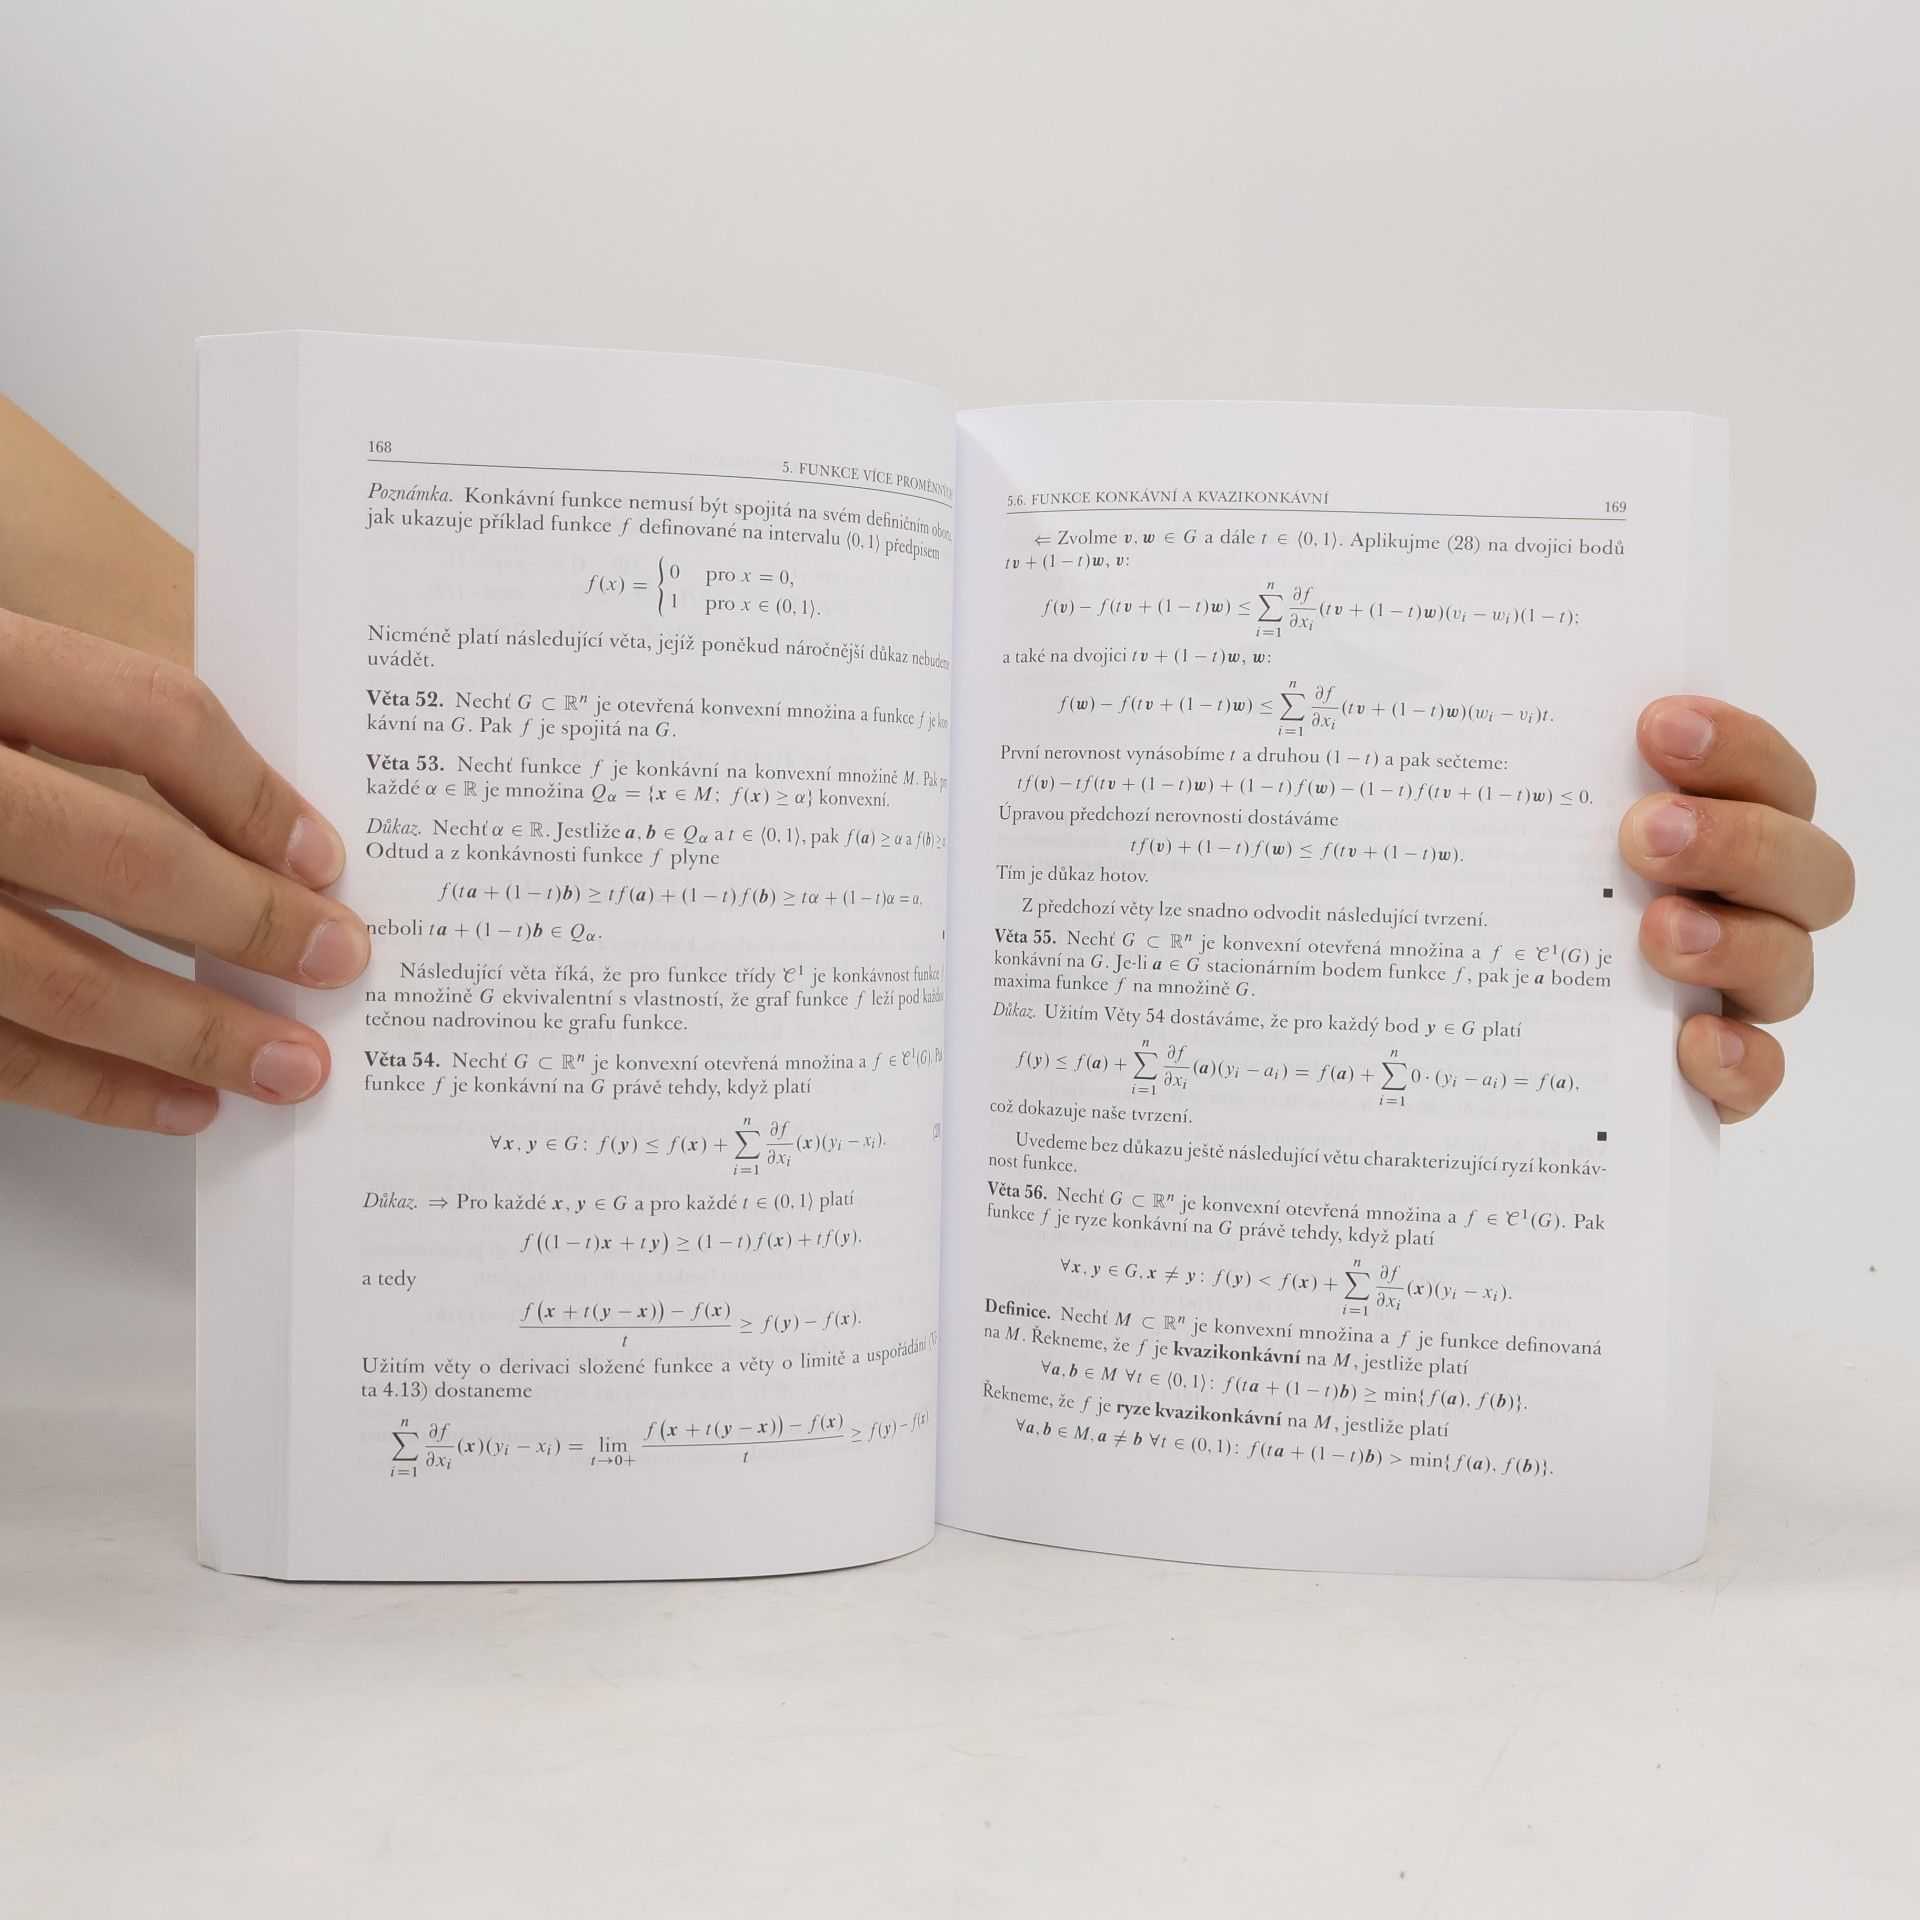 168
5. FUNKCE VÍCE PROMĚNNÝCH
Poznámka. Konkávní funkce nemusí být spojitá na svém definičním oboru,
jak ukazuje příklad funkce f definované na intervalu ⟨0, 1⟩ předpisem
f(x) = { 0 pro x = 0,
1 pro x ∈ (0, 1⟩.
Nicméně platí následující věta, jejíž poněkud náročnější důkaz nebudeme
uvádět.
Věta 52. Nechť G ⊂ ℝⁿ je otevřená konvexní množina a funkce f je kon-
kávní na G. Pak f je spojitá na G.
Věta 53. Nechť funkce f je konkávní na konvexní množině M. Pak pro
každé α ∈ ℝ je množina Qα = {x ∈ M; f(x) ≥ α} konvexní.
Důkaz. Nechť α ∈ ℝ. Jestliže a, b ∈ Qα a t ∈ ⟨0, 1⟩, pak f(a) ≥ α a f(b) ≥
Odtud a z konkávnosti funkce f plyne
f(ta + (1 − t)b) ≥ tf(a) + (1 − t)f(b) ≥ tα + (1 − t)α = α,
neboli ta + (1 − t)b ∈ Qα.
Následující věta říká, že pro funkce třídy 𝒞¹ je konkávnost funkce
na množině G ekvivalentní s vlastností, že graf funkce f leží pod každou
tečnou nadrovinou ke grafu funkce.
Věta 54. Nechť G ⊂ ℝⁿ je konvexní otevřená množina a f ∈ 𝒞¹(G). Pak
funkce f je konkávní na G právě tehdy, když platí
∀x, y ∈ G: f(y) ≤ f(x) + ∑ⁿᵢ₌₁ ∂f/∂xᵢ (x)(yᵢ − xᵢ).
Důkaz. ⇒ Pro každé x, y ∈ G a pro každé t ∈ (0, 1⟩ platí
f((1 − t)x + ty) ≥ (1 − t)f(x) + tf(y),
a tedy
f(x + t(y − x)) − f(x) / t ≥ f(y) − f(x).
Užitím věty o derivaci složené funkce a věty o limitě a uspořádání
ta 4.13) dostaneme
∑ⁿᵢ₌₁ ∂f/∂xᵢ (x)(yᵢ − xᵢ) = lim t→0+ f(x + t(y − x)) − f(x) / t ≥ f(y) − f(x).
5.6. FUNKCE KONKÁVNÍ A KVAZIKONKÁVNÍ
169
⇐ Zvolme v, w ∈ G a dále t ∈ ⟨0, 1⟩. Aplikujme (28) na dvojici bodů
tv + (1 − t)w, v:
f(v) − f(tv + (1 − t)w) ≤ ∑ⁿᵢ₌₁ ∂f/∂xᵢ (tv + (1 − t)w)(vᵢ − wᵢ)(1 − t);
a také na dvojici tv + (1 − t)w, w:
f(w) − f(tv + (1 − t)w) ≤ ∑ⁿᵢ₌₁ ∂f/∂xᵢ (tv + (1 − t)w)(wᵢ − vᵢ)t.
První nerovnost vynásobíme t a druhou (1 − t) a pak sečteme:
tf(v) − tf(tv + (1 − t)w) + (1 − t)f(w) − (1 − t)f(tv + (1 − t)w) ≤ 0.
Úpravou předchozí nerovnosti dostáváme
tf(v) + (1 − t)f(w) ≤ f(tv + (1 − t)w).
Tím je důkaz hotov. ■
Z předchozí věty lze snadno odvodit následující tvrzení.
Věta 55. Nechť G ⊂ ℝⁿ je konvexní otevřená množina a f ∈ 𝒞¹(G) je
konkávní na G. Je-li a ∈ G stacionárním bodem funkce f, pak je a bodem
maxima funkce f na množině G.
Důkaz. Užitím Věty 54 dostáváme, že pro každý bod y ∈ G platí
f(y) ≤ f(a) + ∑ⁿᵢ₌₁ ∂f/∂xᵢ (a)(yᵢ − aᵢ) = f(a) + ∑ⁿᵢ₌₁ 0 · (yᵢ − aᵢ) = f(a),
což dokazuje naše tvrzení. ■
Uvedeme bez důkazu ještě následující větu charakterizující ryzí konkáv-
nost funkce.
Věta 56. Nechť G ⊂ ℝⁿ je konvexní otevřená množina a f ∈ 𝒞¹(G). Pak
funkce f je ryze konkávní na G právě tehdy, když platí
∀x, y ∈ G, x ≠ y: f(y) < f(x) + ∑ⁿᵢ₌₁ ∂f/∂xᵢ (x)(yᵢ − xᵢ).
Definice. Nechť M ⊂ ℝⁿ je konvexní množina a f je funkce definovaná
na M. Řekneme, že f je kvazikonkávní na M, jestliže platí
∀a, b ∈ M ∀t ∈ ⟨0, 1⟩: f(ta + (1 − t)b) ≥ min{f(a), f(b)}.
Řekneme, že f je ryze kvazikonkávní na M, jestliže platí
∀a, b ∈ M, a ≠ b ∀t ∈ (0, 1): f(ta + (1 − t)b) > min{f(a), f(b)}.